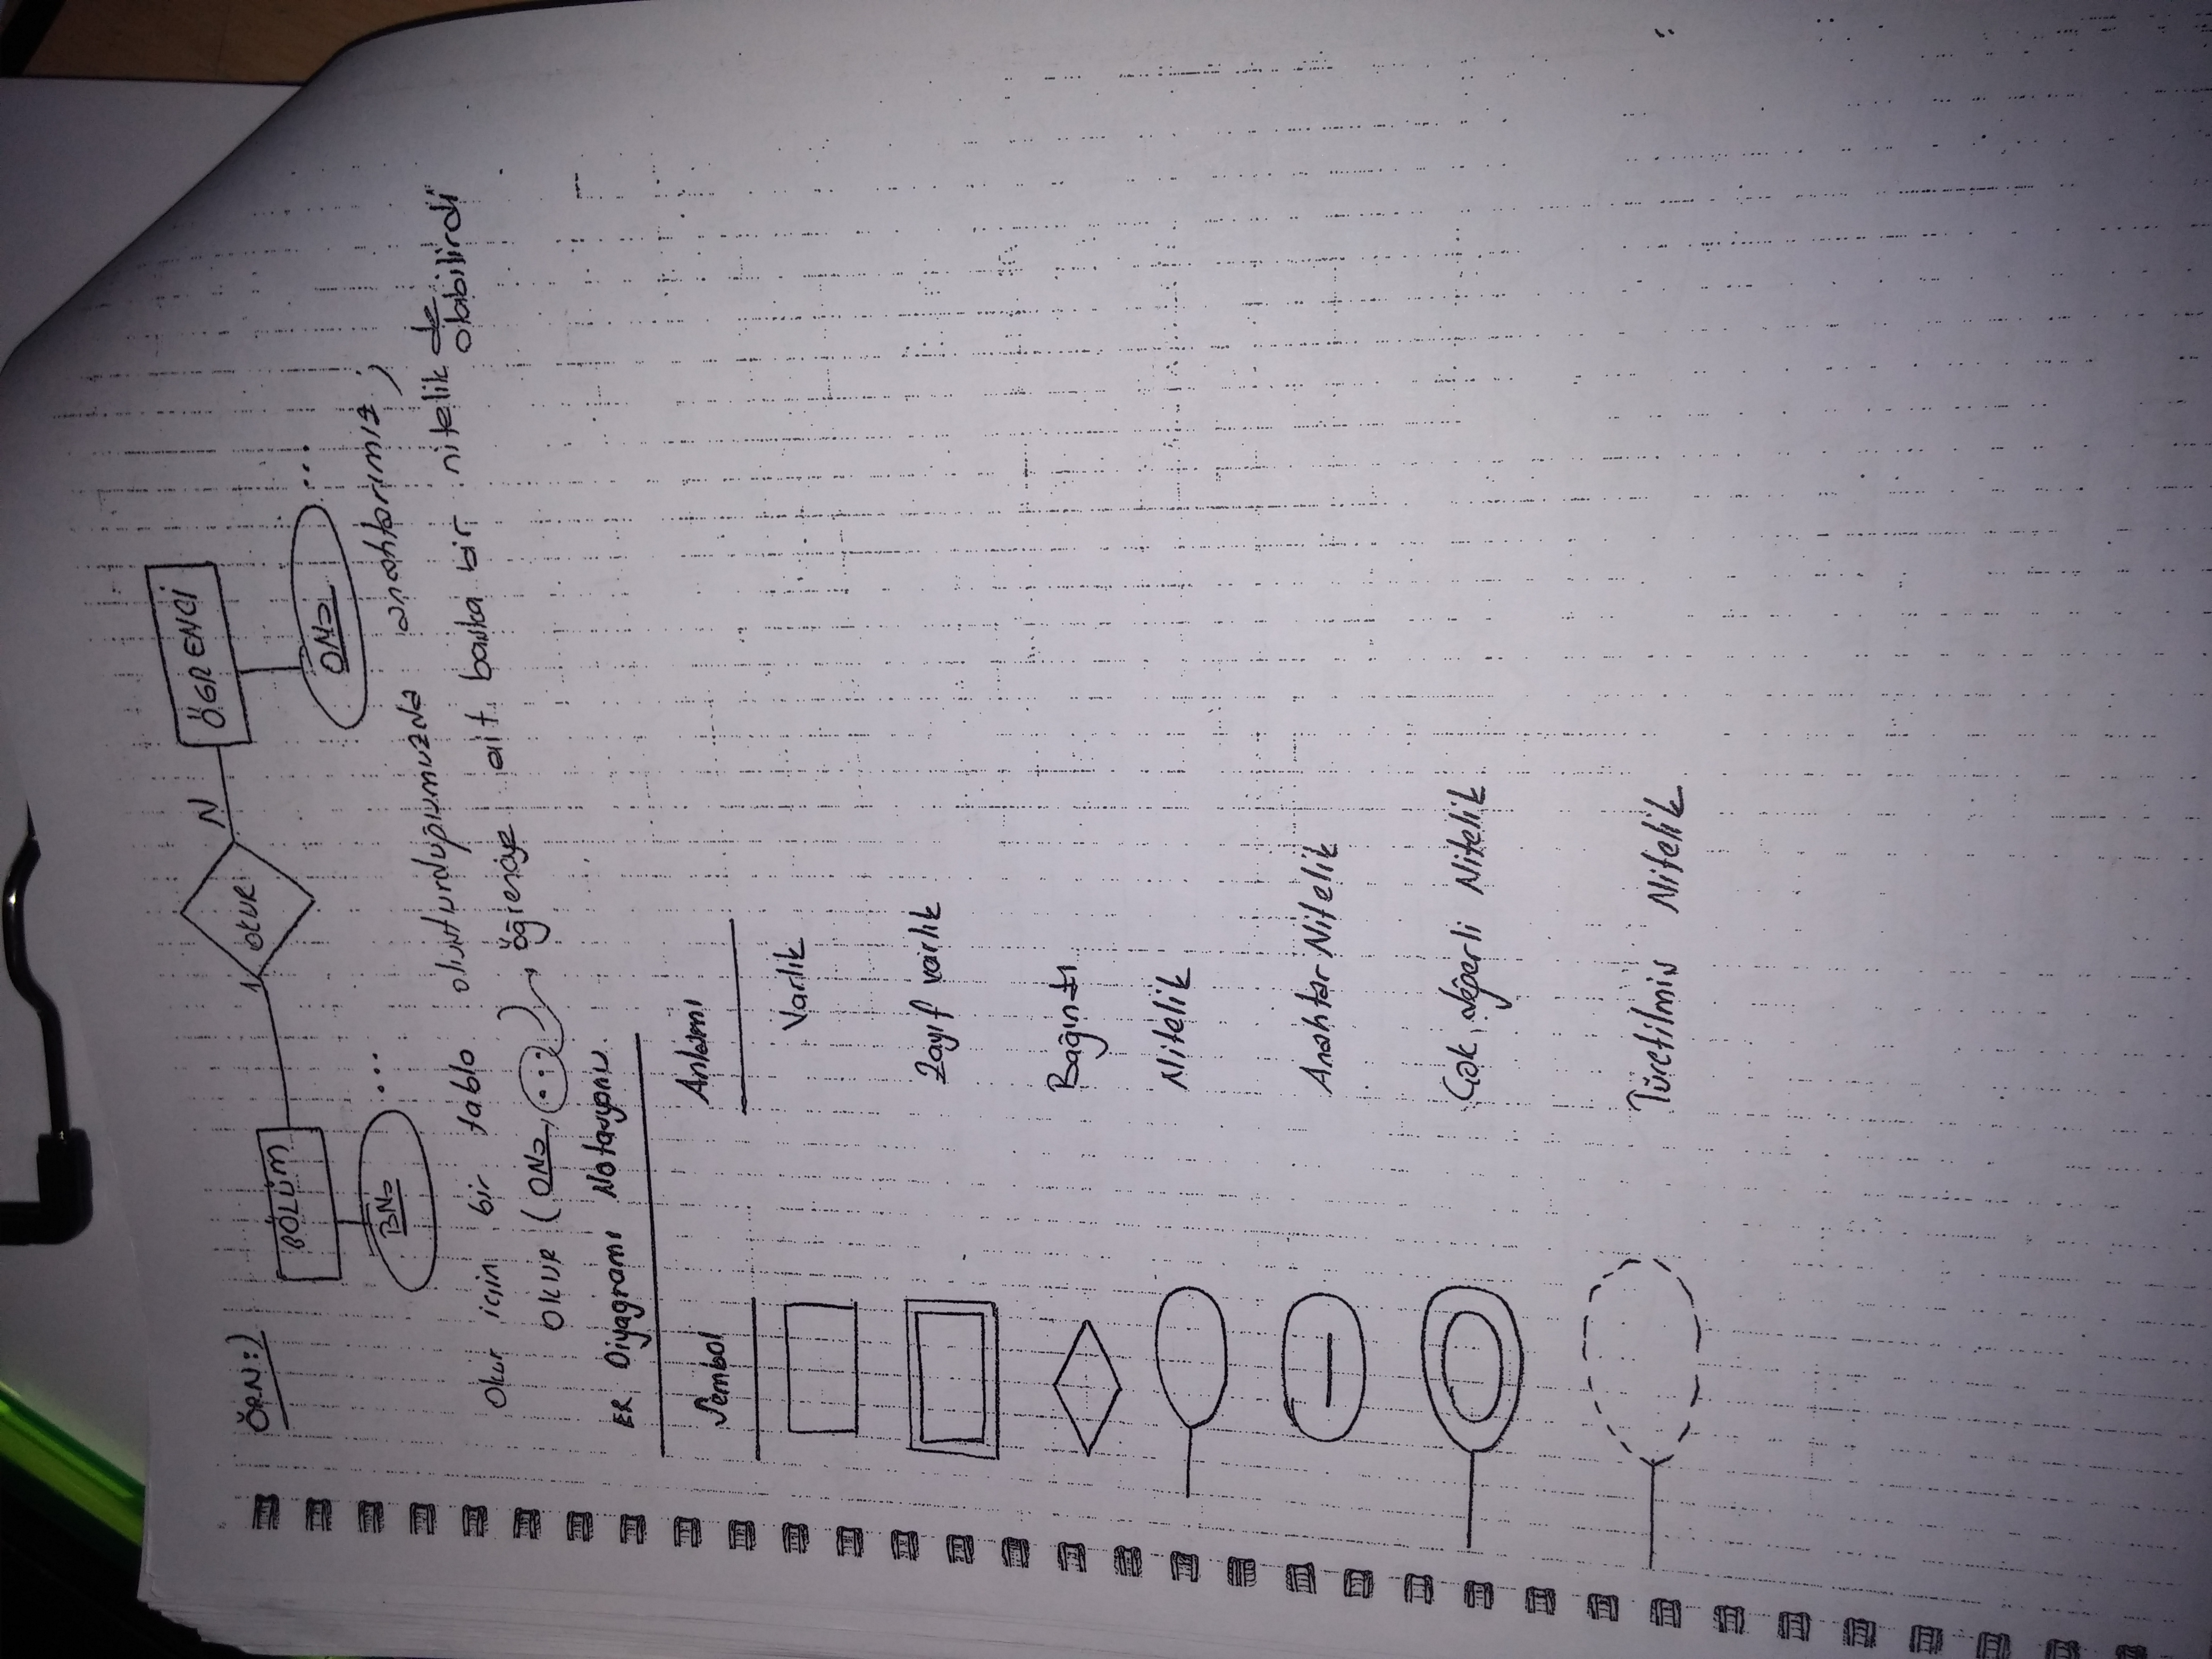 ÖRN:)
BÖLÜM 1 OKUR N ÖĞRENCİ
BNo ... ONo ...
Okur için bir tablo oluşturduğumuzda anahtarımız;
OKUR (ONo, ...) öğrenciye ait başka bir nitelik de olabilirdi
ER Diyagramı Notasyonu
Sembol Anlamı
Varlık
Zayıf varlık
Bağıntı
Nitelik
Anahtar Nitelik
Çok değerli Nitelik
Türetilmiş Nitelik